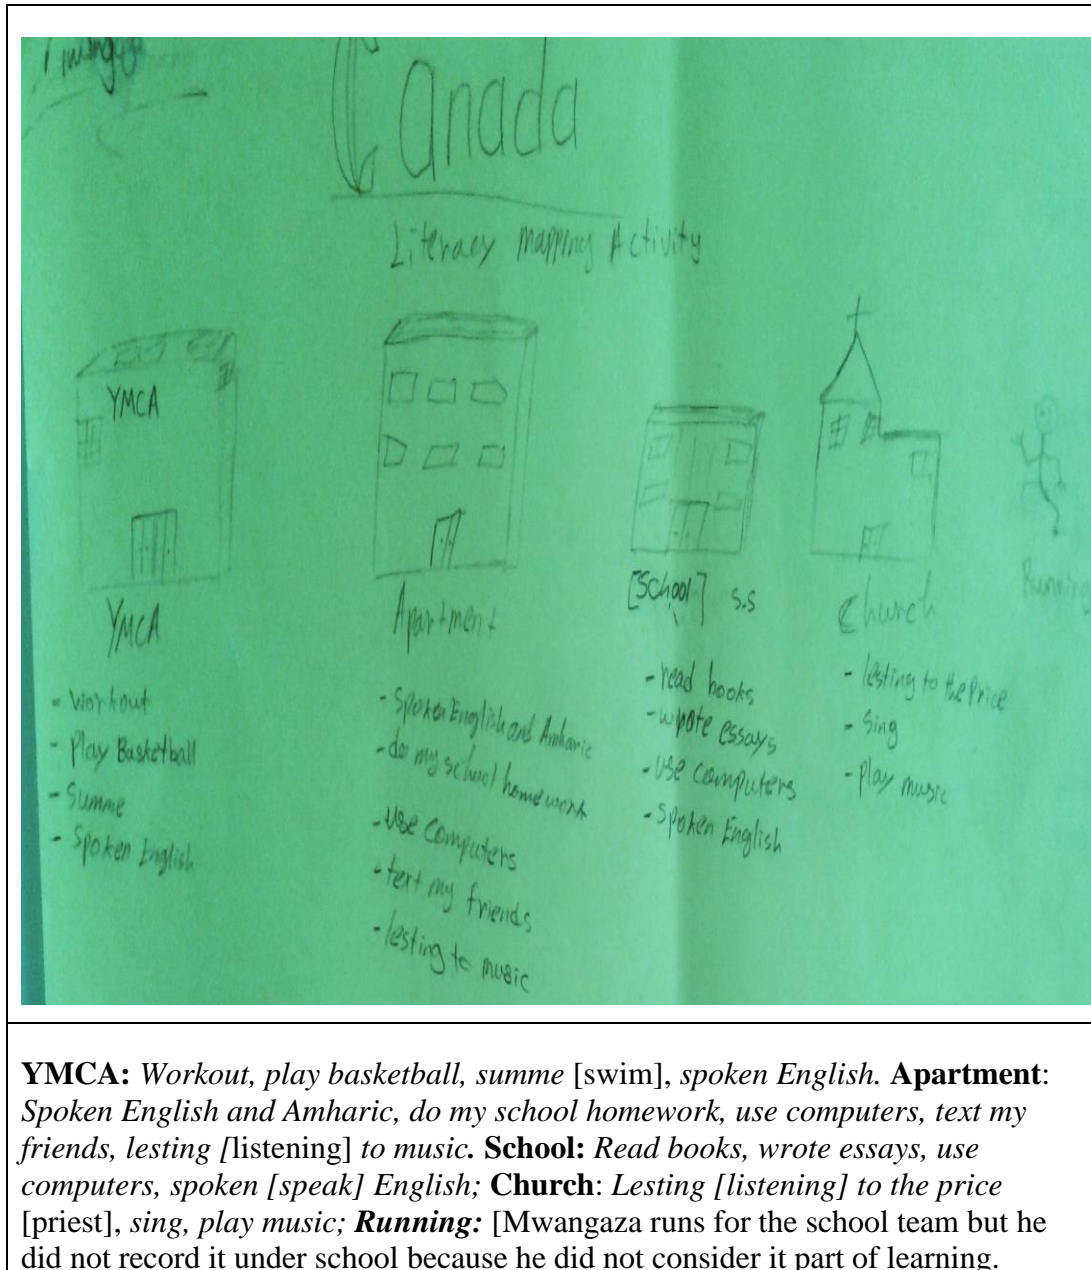 Canada
Literacy Mapping Activity
YMCA
YMCA
- workout
- Play Basketball
- Summe
- Spoken English
Apartment
- Spoken English and Amharic
- do my school homework
- use computers
- text my friends
- lesting to music
[School] S.S
- read books
- wrote essays
- use computers
- Spoken English
Church
- lesting to the Price
- Sing
- play music
Running
YMCA: Workout, play basketball, summe [swim], spoken English. Apartment:
Spoken English and Amharic, do my school homework, use computers, text my
friends, lesting [listening] to music. School: Read books, wrote essays, use
computers, spoken [speak] English; Church: Lesting [listening] to the price
[priest], sing, play music; Running: [Mwangaza runs for the school team but he
did not record it under school because he did not consider it part of learning.